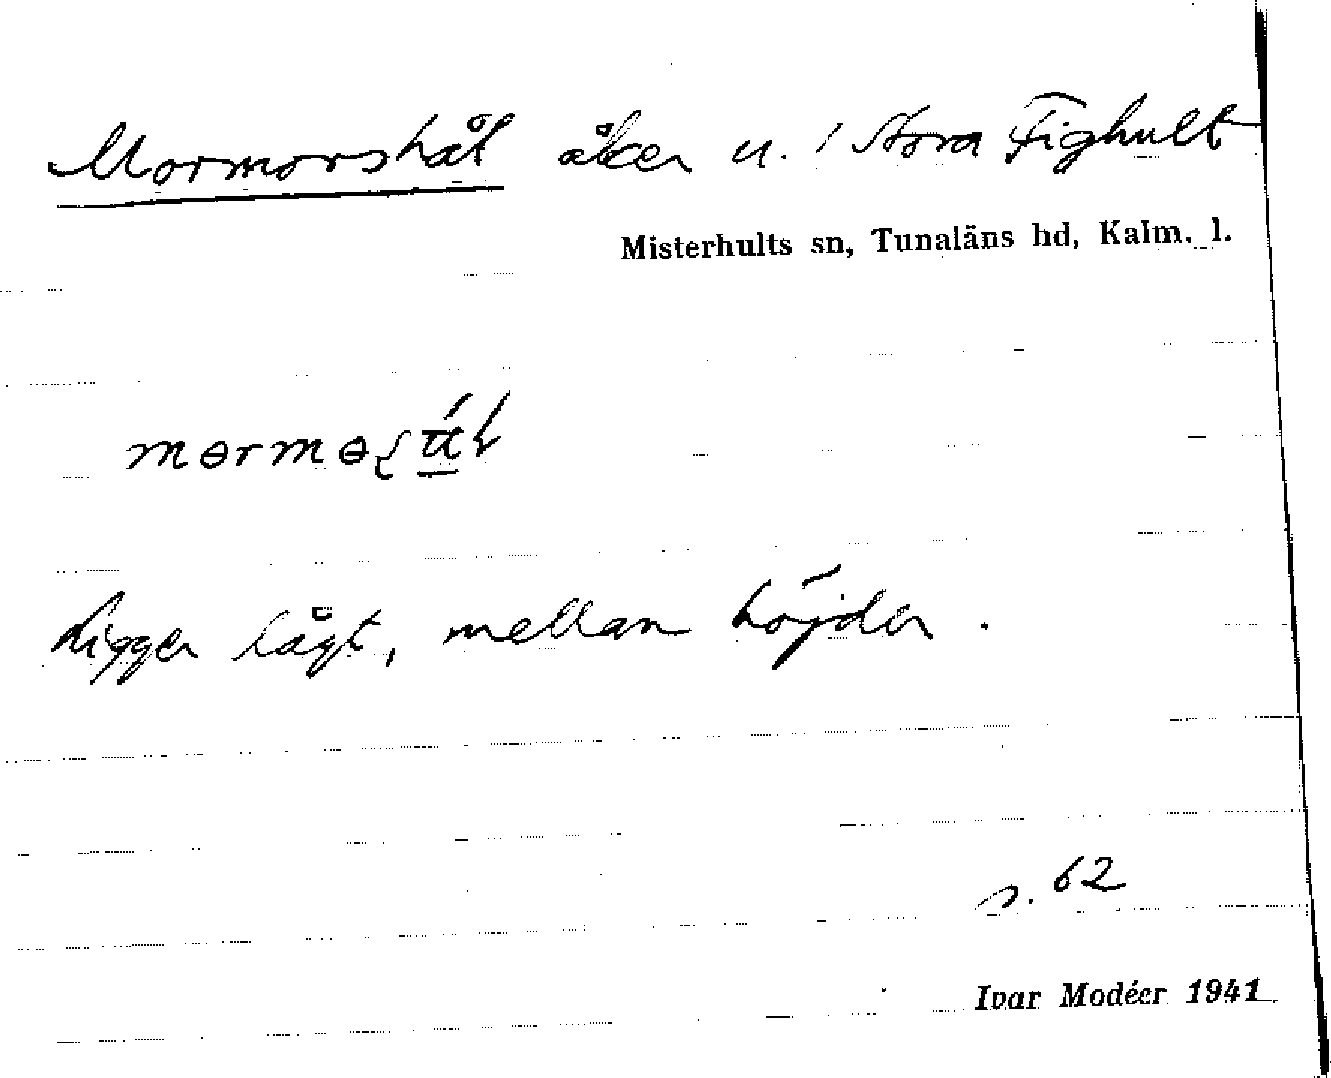 Mormorshål åker u. Stora Fighult
Misterhults sn, Tunaläns hd, Kalm. l.
Ligger lågt, mellan höjder.
s. 62
Ivar Modéer 1941